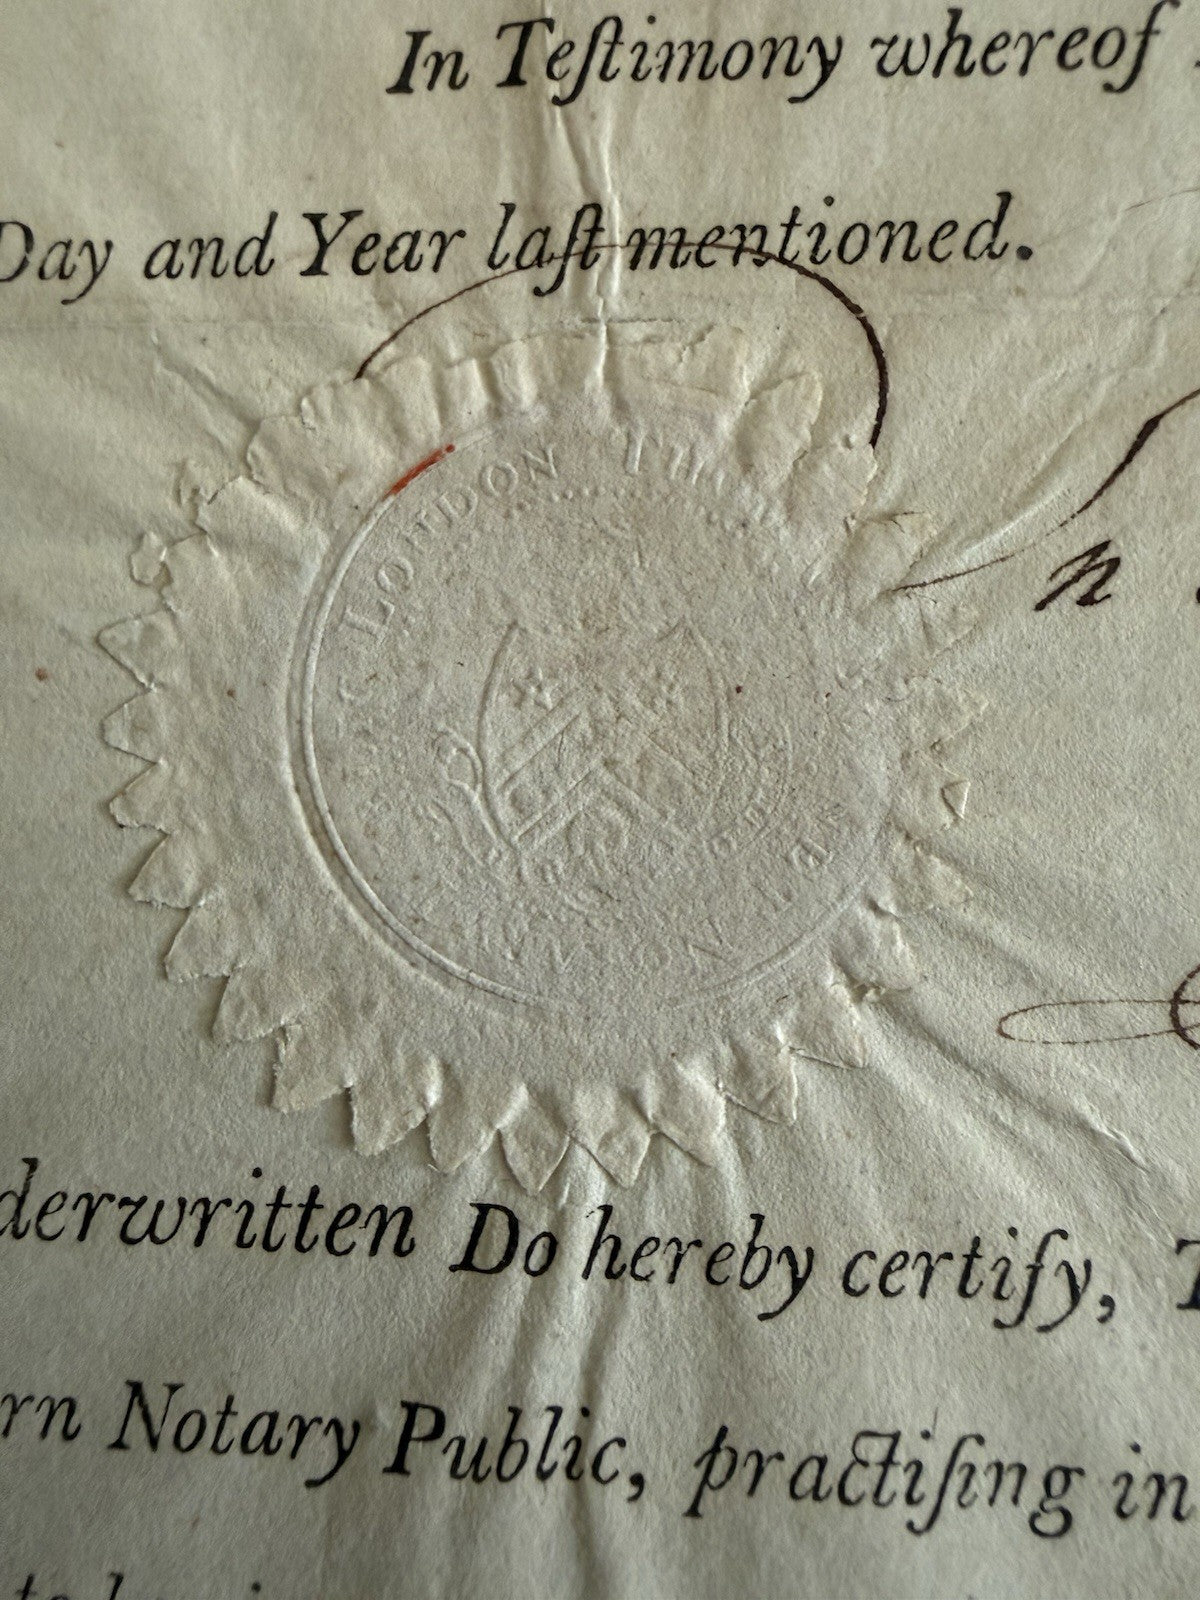 In Teſtimony whereof
Day and Year laſt mentioned.
LONDON
n
derwritten Do hereby certify, T
rn Notary Public, practiſing in